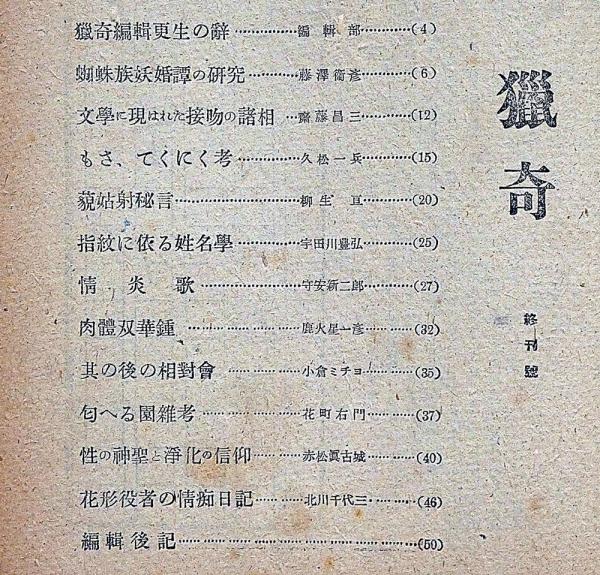 獵奇
終刊號
獵奇編輯更生の辭…………編輯部…………(4)
蜘蛛族妖婚譚の硏究…………藤澤衞彦…………(6)
文學に現はれた接吻の諸相…齋藤昌三…………(12)
もさ、てくにく考…………久松一兵…………(15)
藐姑射秘言…………柳生亘…………(20)
指紋に依る姓名學…………宇田川豊弘…………(25)
情炎歌…………守安新二郎…………(27)
肉體双華鍾…………鹿火星一彦…………(32)
其の後の相對會…………小倉ミチヨ…………(35)
匂へる園雜考…………花町右門…………(37)
性の神聖と淨化の信仰…………赤松眞古城…………(40)
花形役者の情痴日記…………北川千代三…………(46)
編輯後記…………(50)